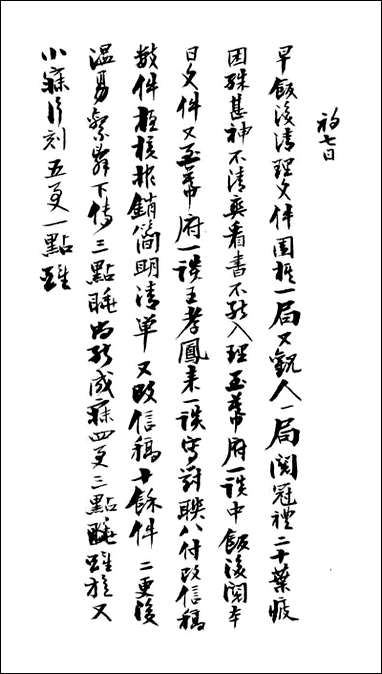 初七日
早飯後清理文件圍棋一局又觀人一局閱冠禮二十葉疲
困殊甚神不清爽看書不能入理至幕府一談中飯後閱本
日文件又至幕府一談王孝鳳來一談寫對聯八付改信稿
數件核報銷簡明清單又改信稿十餘件二更後
溫易繫辭下傳三點睡尚能成寐四更三點醒於又
小寐片刻五更一點醒